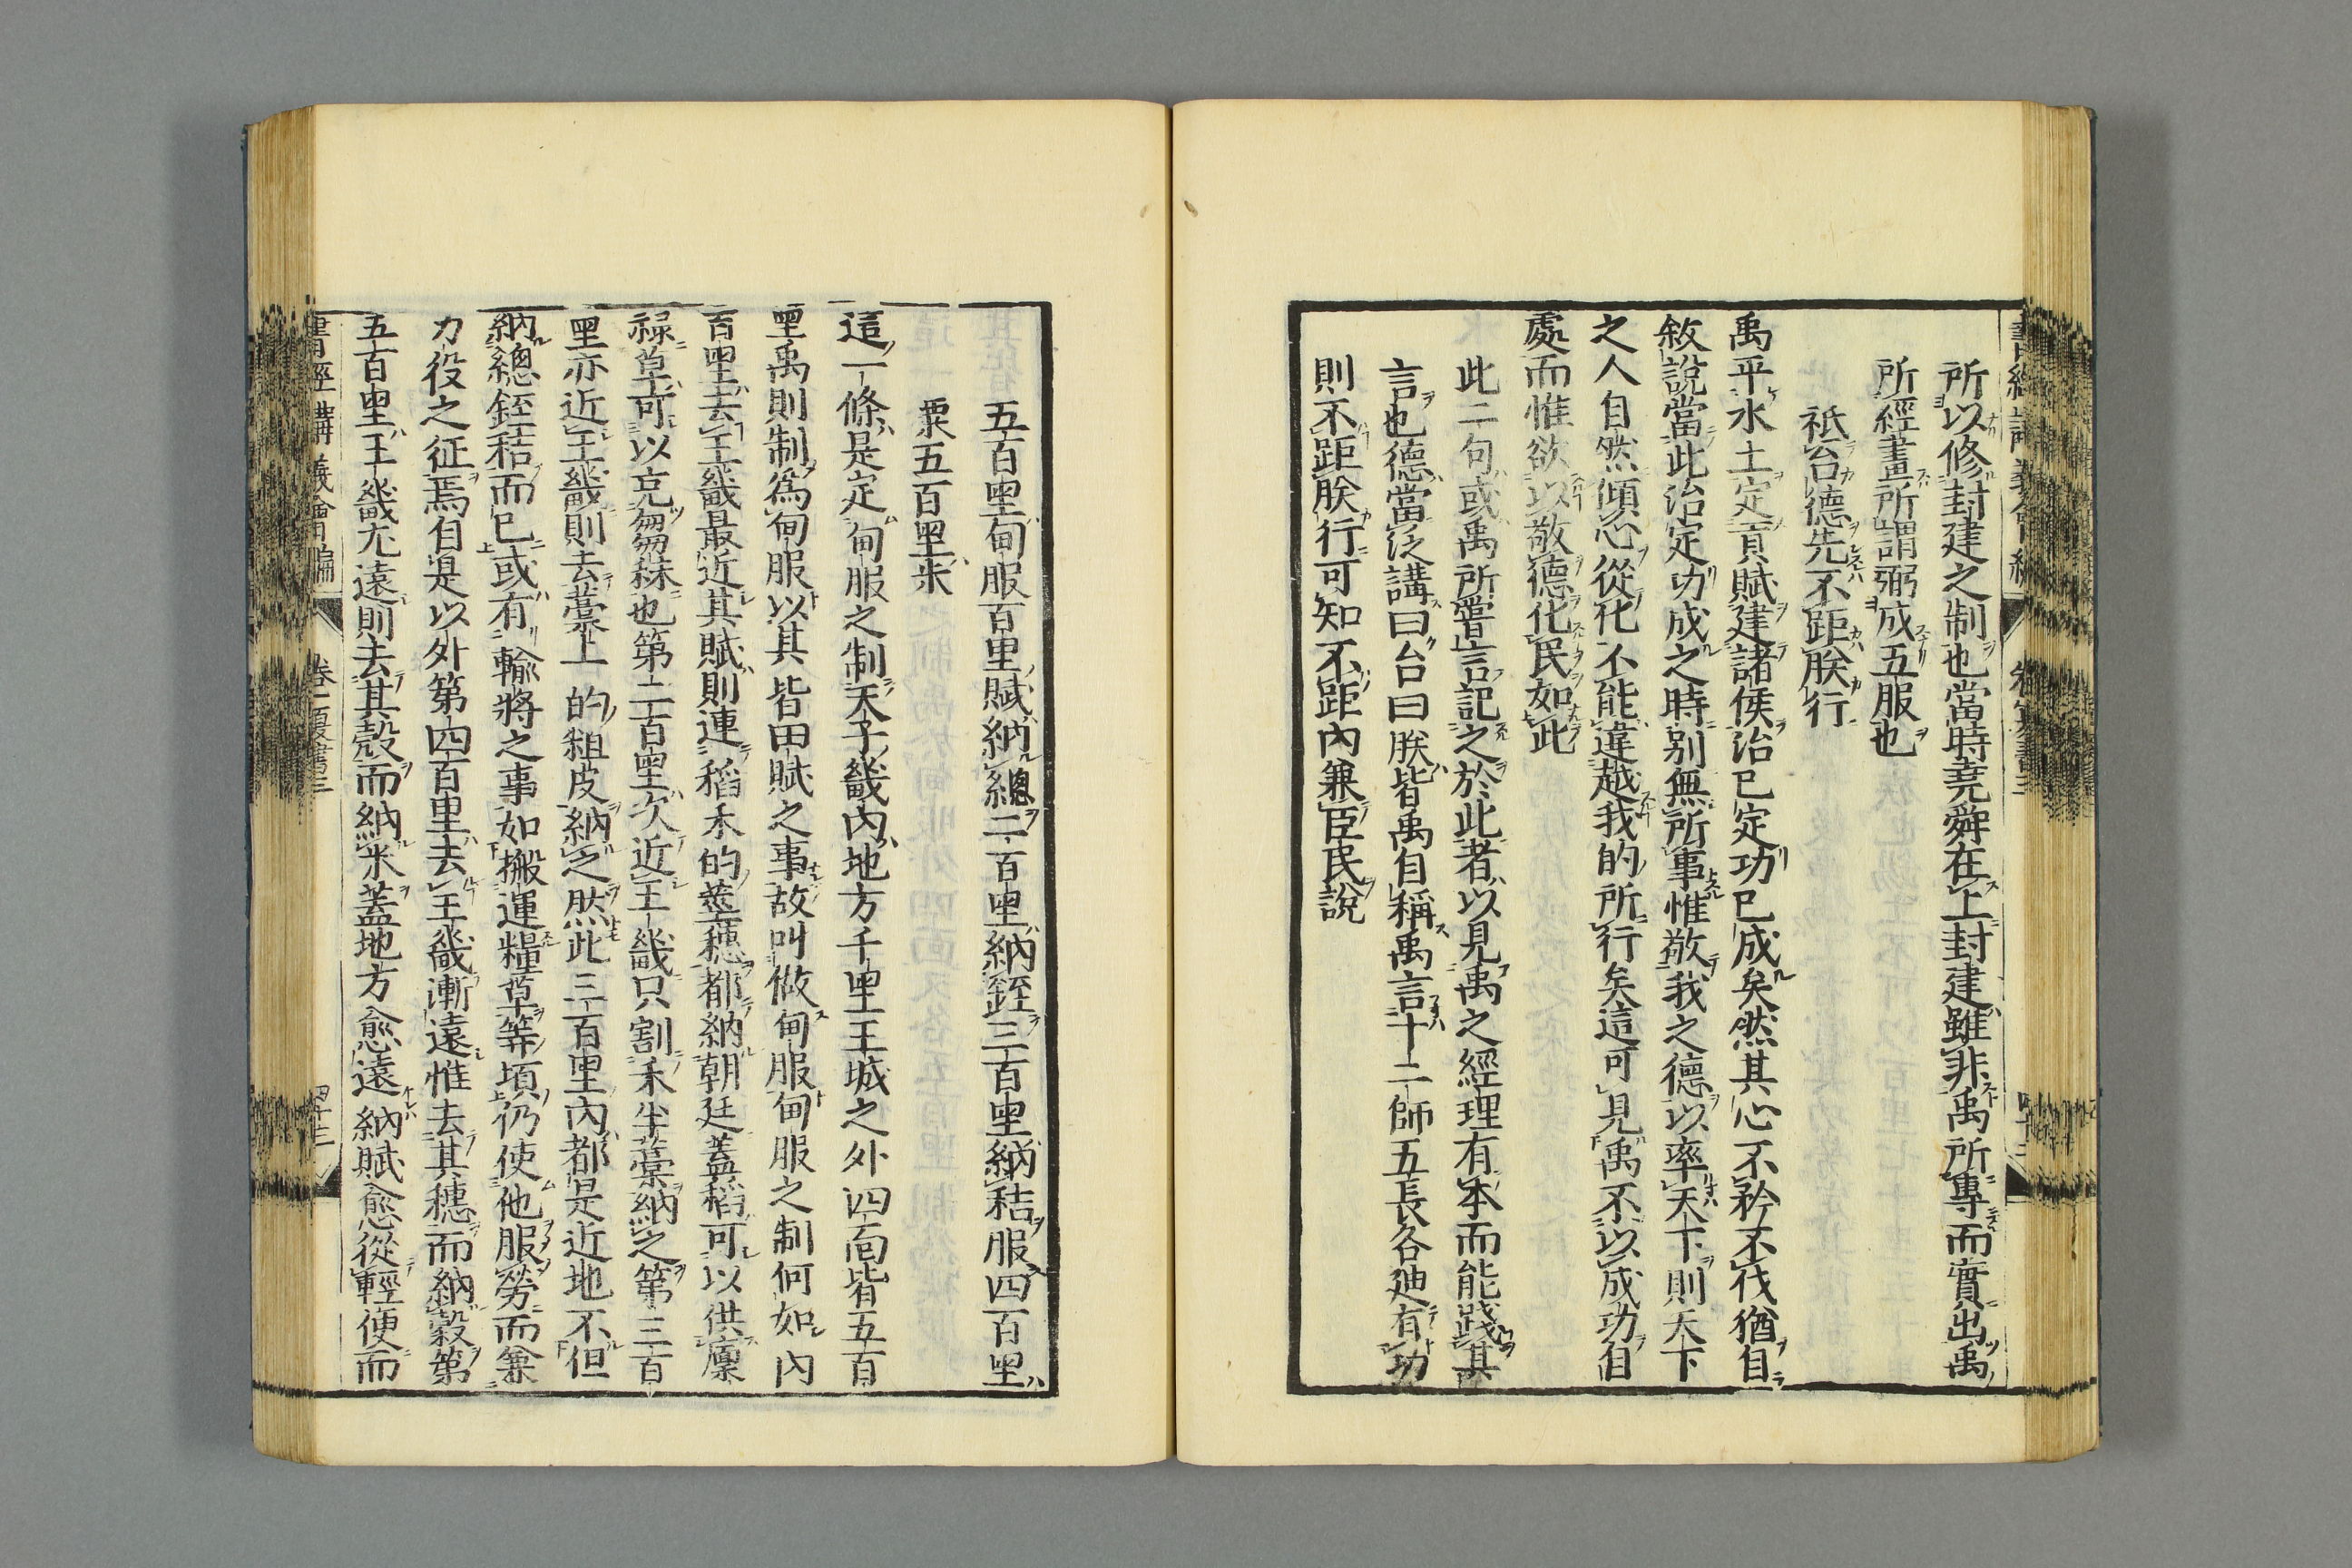 所以修封建之制也當時堯舜在上封建雖非禹所專而實出禹
所經畫所謂弼成五服也
祇台德先不距朕行
禹平水土定貢賦建諸侯治已定功已成矣然其心不矜不伐猶自
敘說當此治定功成之時別無所事惟敬我之德以率天下則天下
之人自然傾心從化不能違越我的所行矣這可見禹不以成功自
處而惟欲以敬德化民如此
此二句或禹所嘗言記之於此者以見禹之經理有本而能踐其
言也德當泛講曰台曰朕皆禹自稱禹言十二師五長各迪有功
則不距朕行可知不距內兼臣民說
五百里甸服百里賦納總二百里納銍三百里納秸服四百里
粟五百里米
這一條是定甸服之制天子畿內地方千里王城之外四面皆五百
里禹則制爲甸服以其皆田賦之事故叫做甸服甸服之制何如內
百里去王畿最近其賦則連稻禾的莖穗都納朝廷蓋稻可以供廩
祿草可以充芻秣也第二百里次近王畿只割禾半藁納之第三百
里亦近王畿則去藁上的粗皮納之然此三百里內都是近地不但
納總銍秸而已或有輸將之事如搬運糧草等項仍使他服勞而兼
力役之征焉自是以外第四百里去王畿漸遠惟去其穗而納穀第
五百里王畿尤遠則去其殼而納米蓋地方愈遠納賦愈從輕便而
書經講義會編 卷二夏書三 四十三